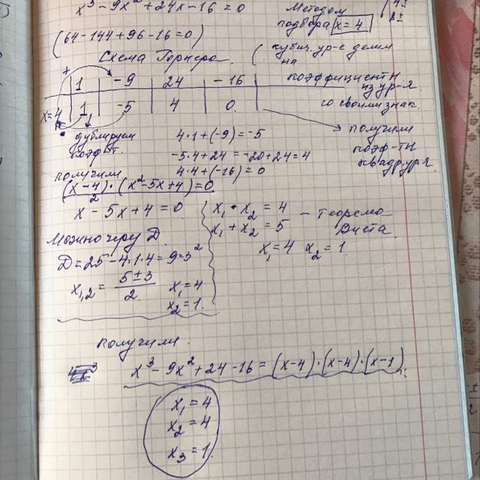 x³-9x²+24x-16=0
Методом
подбора x=4
(64-144+96-16=0)
Схема Горнера.
кубич. ур-е делим
на
коэффициенты
из ур-я.
со своим знак.
1 | -9 | 24 | -16
x=4 | 1 | -5 | 4 | 0
дублируем
коэф-т.
4·1+(-9)=-5
-5·4+24=-20+24=4
4·4+(-16)=0
получили
коэф-ты
квадр.ур-я.
получили
(x-4)·(x²-5x+4)=0
x²-5x+4=0
x₁·x₂=4
x₁+x₂=5
- теорема
Виета.
x₁=4 x₂=1
Можно через D.
D=25-4·1·4=9=3²
x₁,₂=(5±3)/2
x₁=4
x₂=1.
получили.
x³-9x²+24-16=(x-4)·(x-4)·(x-1)
x₁=4
x₂=4
x₃=1.